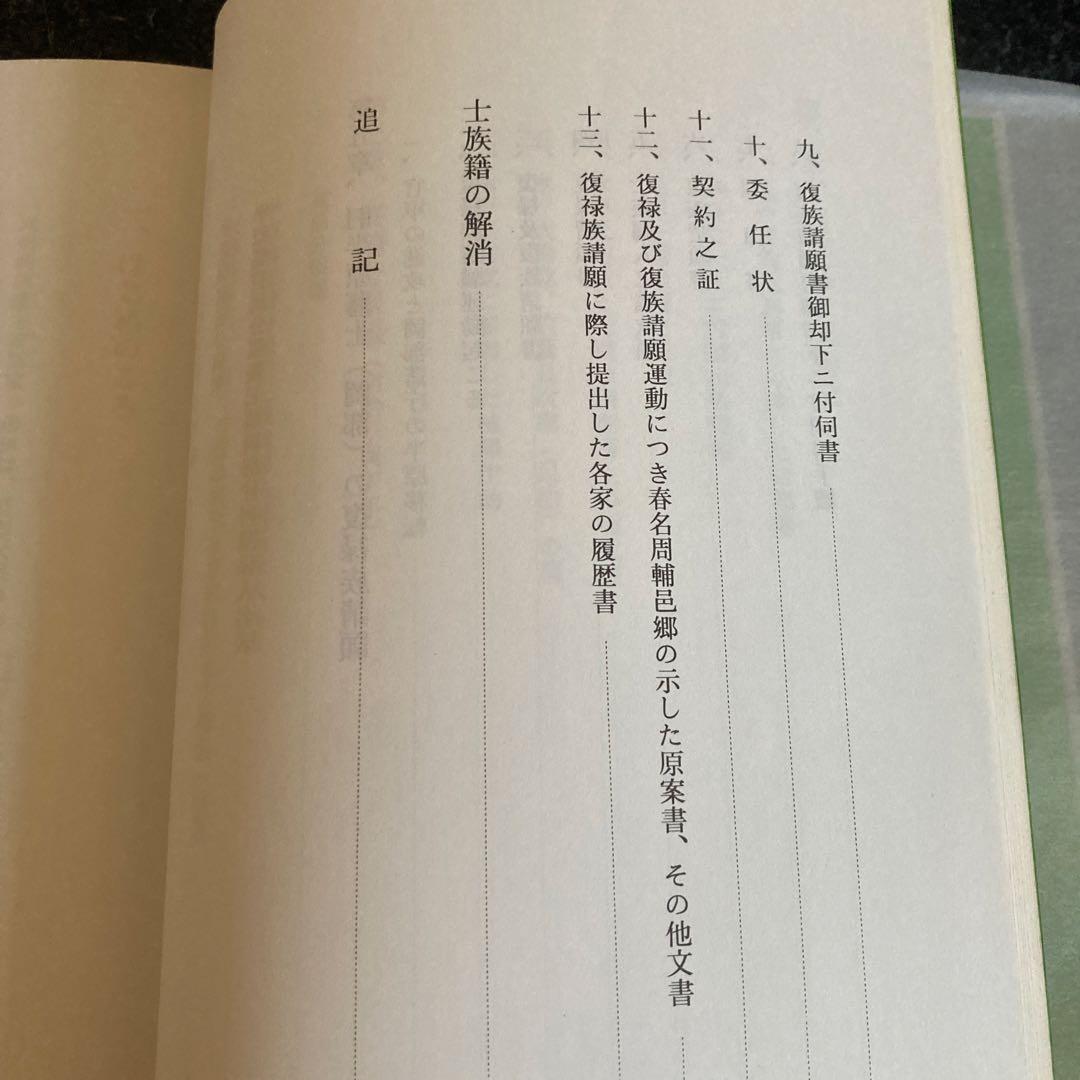 九、復族請願書御却下ニ付伺書
十、委任状
十一、契約之証
十二、復禄及び復族請願運動につき春名周輔邑郷の示した原案書、その他文書
十三、復禄族請願に際し提出した各家の履歴書
士族籍の解消
追記